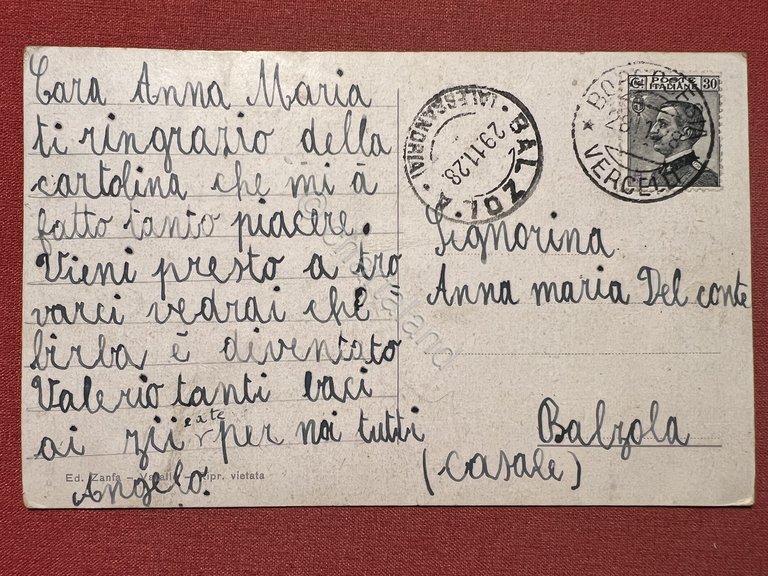 Cara Anna Maria
ti ringrazio della
cartolina che mi à
fatto tanto piacere.
Vieni presto a tro
varci vedrai che
birba è diventato
Valerio tanti baci
ai zii e a te per noi tutti
Angelo.
Ed. Zanfa - Ripr. vietata
BALZOLA
(ALESSANDRIA)
29.11.28
POSTE
ITALIANE
30
VERCELLI
Signorina
Anna maria Del conte
Balzola
(Casale)
© Cartaland